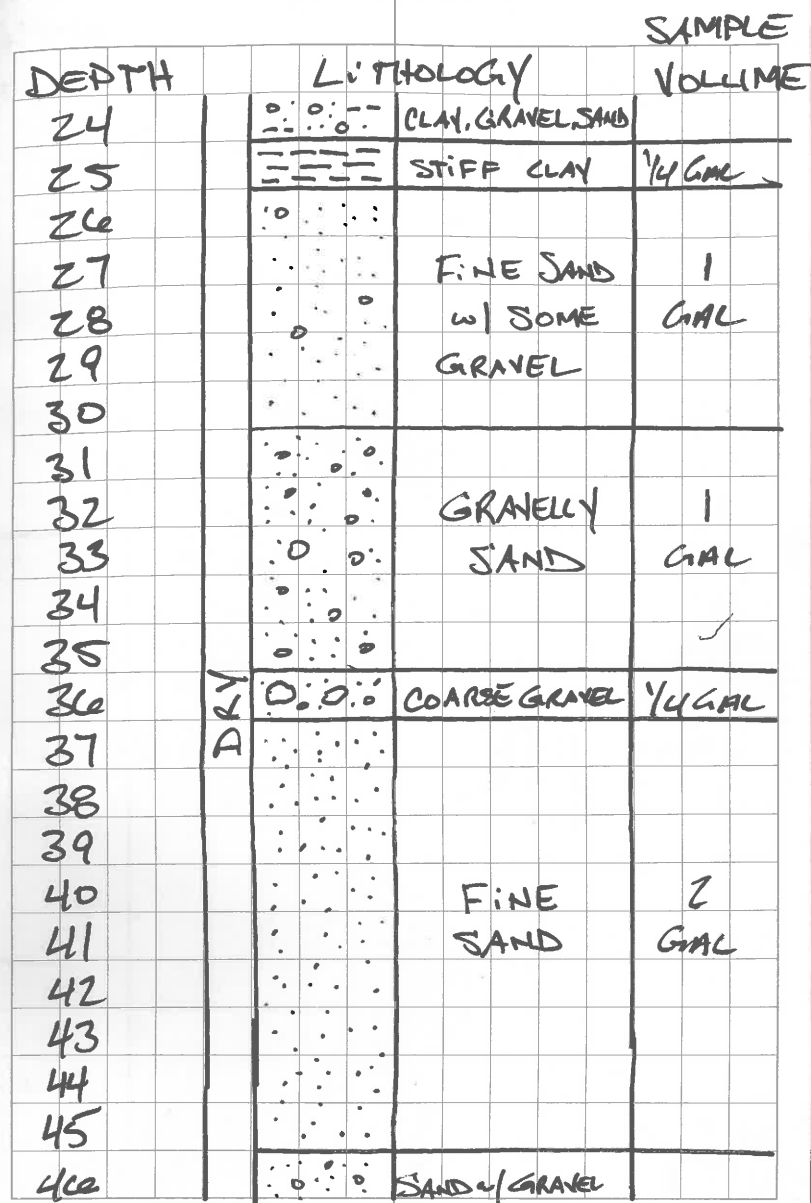 SAMPLE
DEPTH LiTHOLOGY VOLUME
24 CLAY, GRAVEL, SAND
25 STiFF CLAY 1/4 GAL
26
27 FiNE SAND 1
28 w/ SOME GAL
29 GRAVEL
30
31
32 GRAVELLY 1
33 SAND GAL
34
35
36 COARSE GRAVEL 1/4 GAL
DRY
37
38
39
40 FiNE 2
41 SAND GAL
42
43
44
45
46 SAND w/ GRAVEL